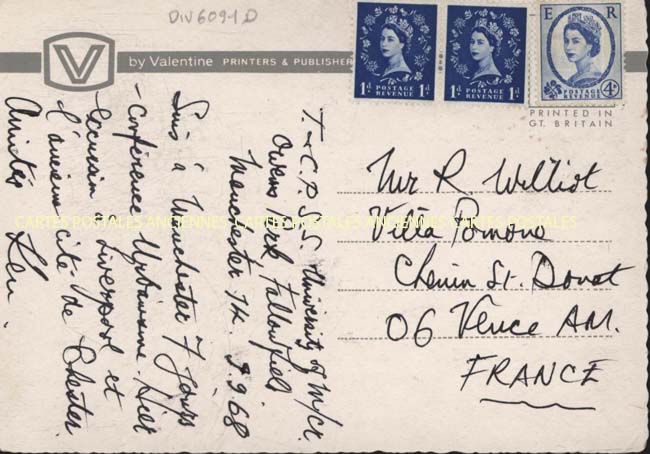 DIV609-1 D
V
by Valentine PRINTERS & PUBLISHER
1d POSTAGE REVENUE 1d
1d POSTAGE REVENUE 1d
E R
POSTAGE REVENUE 4d
PRINTED IN
GT. BRITAIN
T & C.P. S.S. University of M/cr.
Owens Park Fallowfield
Manchester 14. 9.9.68
Suis à Manchester 7 jours
- Conférence Urbanisme. Hier
excursion à Liverpool et
l'ancienne cité de Chester.
Amitiés Ken.
Mr R. Williot
Villa Pomono
Chemin St. Donat
06 Vence A.M.
FRANCE
CARTES POSTALES ANCIENNES - CARTES POSTALES ANCIENNES - CARTES POSTALES